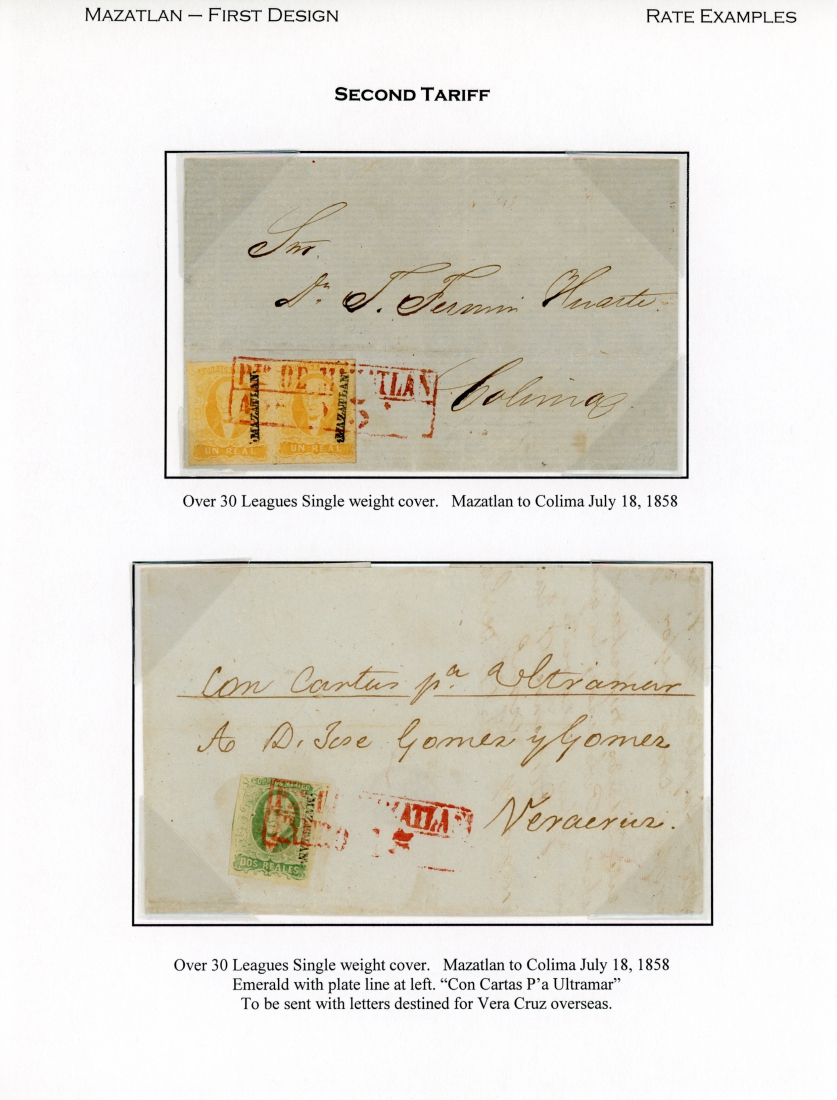 MAZATLAN – FIRST DESIGN
RATE EXAMPLES
SECOND TARIFF
Sor.
Dn. J. Fermin Huarte.
Colima
MAZATLAN
MAZATLAN
UN REAL
UN REAL
DE MAZATLAN
Over 30 Leagues Single weight cover. Mazatlan to Colima July 18, 1858
Con Cartas pa. Ultramar
A D. Jose Gomez y Gomez
Veracruz.
MAZATLAN
DOS REALES
MAZATLAN
Over 30 Leagues Single weight cover. Mazatlan to Colima July 18, 1858
Emerald with plate line at left. “Con Cartas P’a Ultramar”
To be sent with letters destined for Vera Cruz overseas.